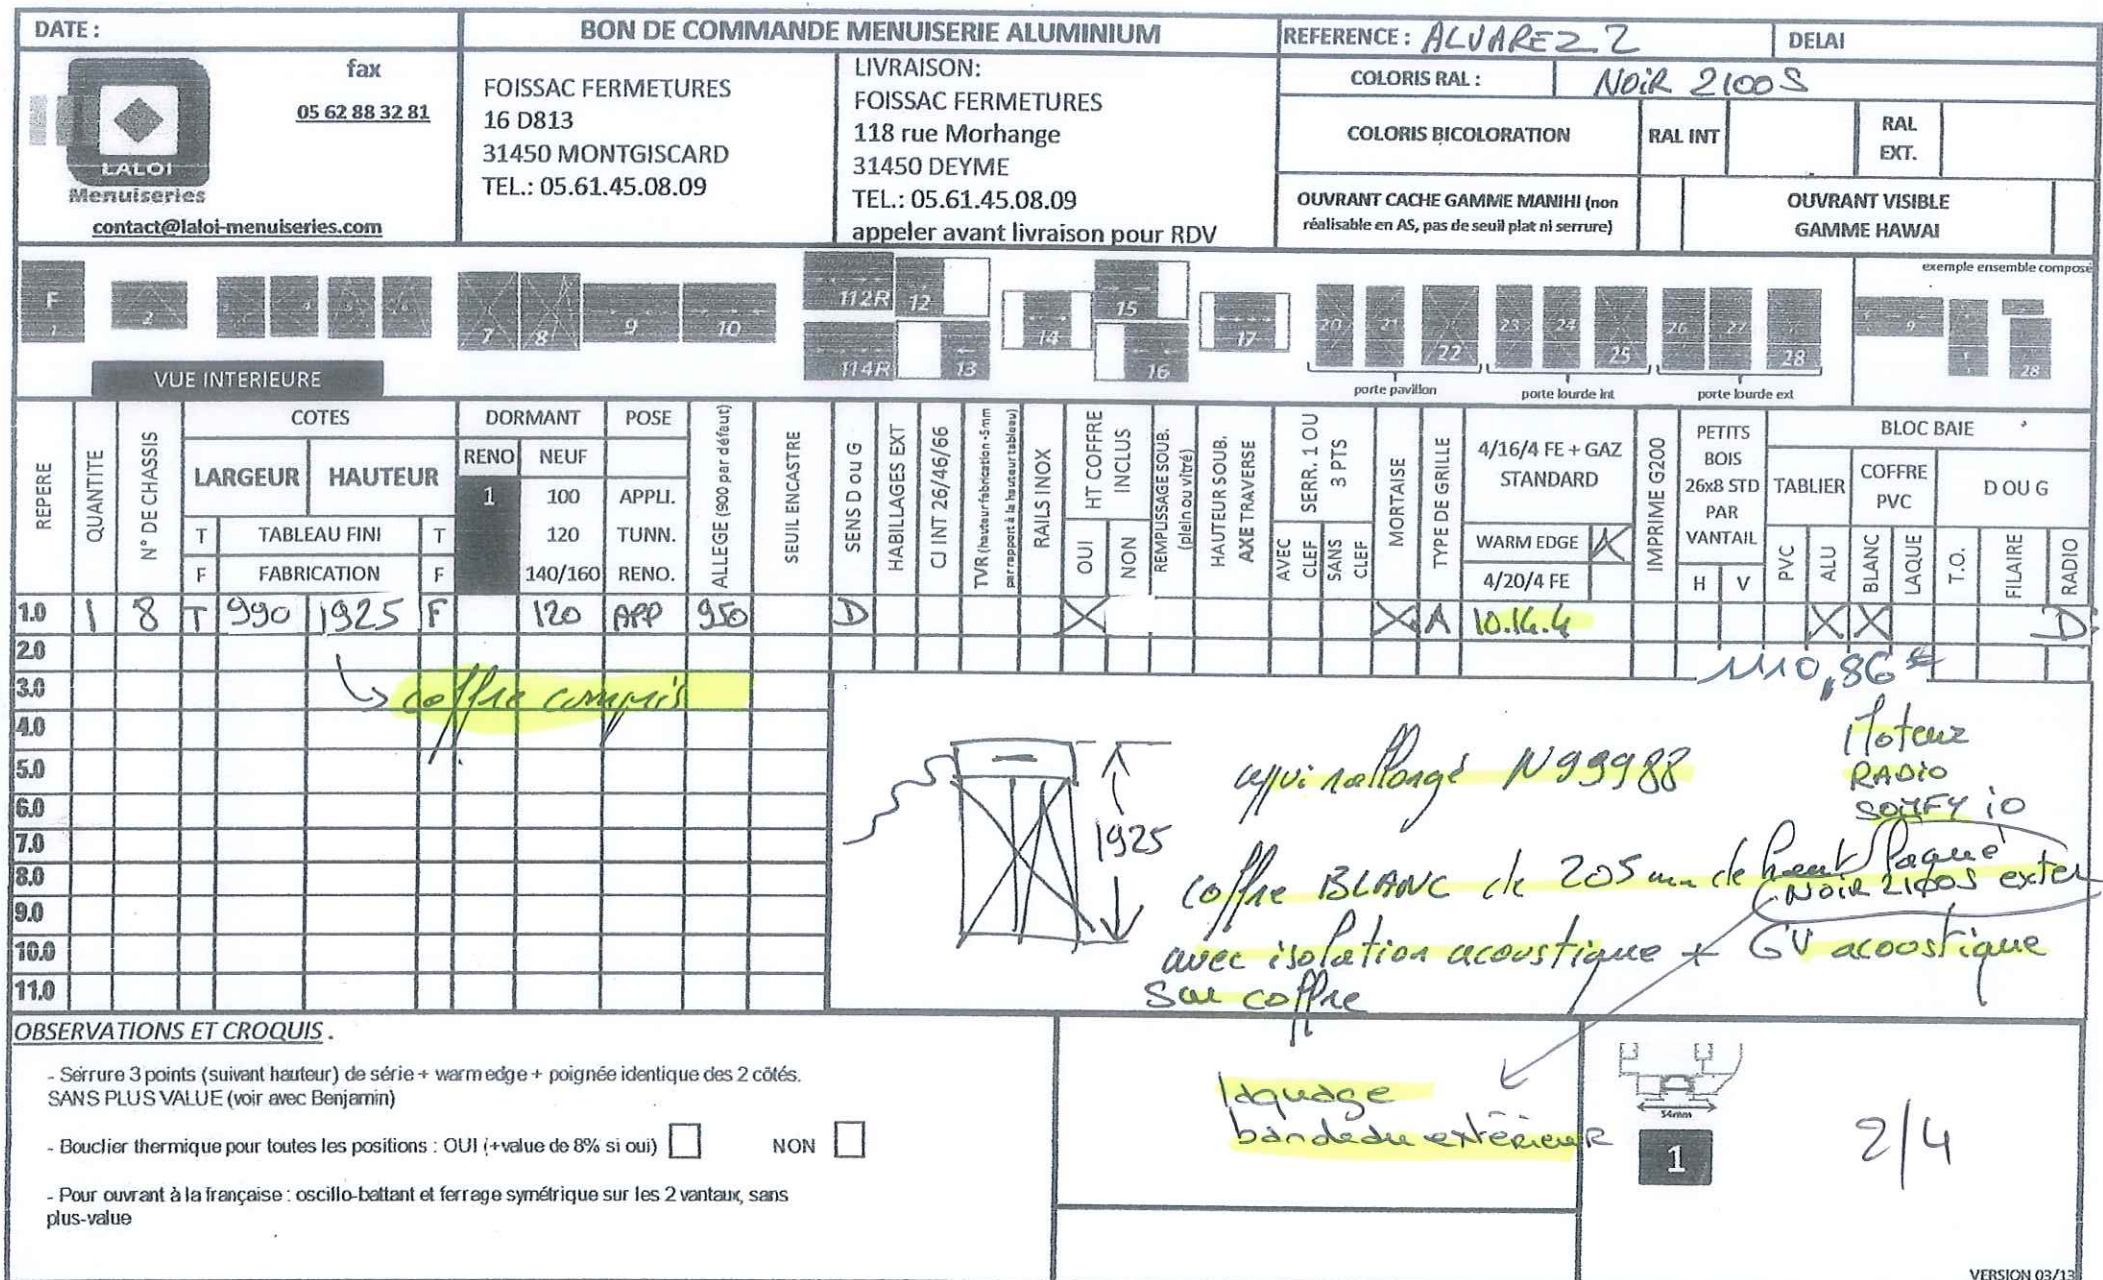 DATE :
BON DE COMMANDE MENUISERIE ALUMINIUM
REFERENCE : ALVAREZ 2
DELAI
fax
05 62 88 32 81
LALOI
Menuiseries
contact@laloi-menuiseries.com
FOISSAC FERMETURES
16 D813
31450 MONTGISCARD
TEL.: 05.61.45.08.09
LIVRAISON:
FOISSAC FERMETURES
118 rue Morhange
31450 DEYME
TEL.: 05.61.45.08.09
appeler avant livraison pour RDV
COLORIS RAL : NOIR 2100S
COLORIS BICOLORATION
RAL INT
RAL
EXT.
OUVRANT CACHE GAMME MANIHI (non
réalisable en AS, pas de seuil plat ni serrure)
OUVRANT VISIBLE
GAMME HAWAI
F
1
2
7
8
9
10
112R
114R
12
13
14
15
16
17
20
21
22
23
24
25
26
27
28
exemple ensemble composé
9
28
VUE INTERIEURE
porte pavillon
porte lourde int
porte lourde ext
REPERE
QUANTITE
N° DE CHASSIS
COTES
LARGEUR
HAUTEUR
T TABLEAU FINI T
F FABRICATION F
DORMANT
RENO
NEUF
1
100
120
140/160
POSE
APPLI.
TUNN.
RENO.
ALLEGE (900 par défaut)
SEUIL ENCASTRE
SENS D ou G
HABILLAGES EXT
CJ INT 26/46/66
TVR (hauteur fabrication -5mm
par rapport à la hauteur tableau)
RAILS INOX
HT COFFRE
INCLUS
OUI
NON
REMPLISSAGE SOUB.
(plein ou vitré)
HAUTEUR SOUB.
AXE TRAVERSE
SERR. 1 OU
3 PTS
AVEC
CLEF
SANS
CLEF
MORTAISE
TYPE DE GRILLE
4/16/4 FE + GAZ
STANDARD
WARM EDGE X
4/20/4 FE
IMPRIME G200
PETITS
BOIS
26x8 STD
PAR
VANTAIL
H
V
BLOC BAIE
TABLIER
COFFRE
PVC
D OU G
PVC
ALU
BLANC
LAQUE
T.O.
FILAIRE
RADIO
1.0 1 8 T 990 1925 F 120 APP 950 D X X A 10.14.4 X X D
2.0
3.0
4.0
5.0
6.0
7.0
8.0
9.0
10.0
11.0
110,86 €
coffre compris
1925
appui rallongé N99988
Moteur
RADIO
SOMFY iO
coffre BLANC de 205 mm de haut laqué
NOIR 2100S exter
avec isolation acoustique + GV acoustique
sur coffre
OBSERVATIONS ET CROQUIS .
- Serrure 3 points (suivant hauteur) de série + warm edge + poignée identique des 2 côtés.
SANS PLUS VALUE (voir avec Benjamin)
- Bouclier thermique pour toutes les positions : OUI (+value de 8% si oui)
NON
- Pour ouvrant à la française : oscillo-battant et ferrage symétrique sur les 2 vantaux, sans
plus-value
laquage
bandeau extérieur
54mm
1
2/4
VERSION 03/13